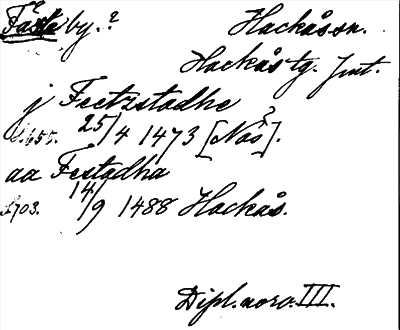 Fäxtaby.?
Hackås sn.
Hackås tg. Jmt.
j Feetzstadhe
S.655. 25/4 1473 [Näs?].
aa Festadha
S.703. 14/9 1488 Hackås.
Dipl. norv. III.